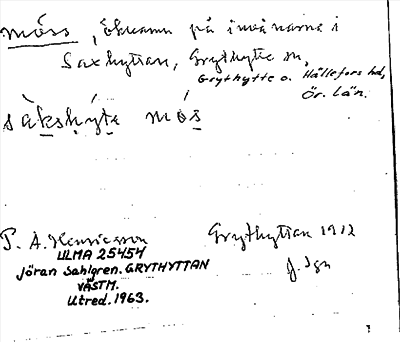 möss, öknamn på invånarna i
Saxhyttan, Grythytte sn,
Grythytte o. Hällefors hd,
Ör. län.
sàkshýte mós
P. A. Henricsson Grythyttan 1912
ULMA 25454
Jöran Sahlgren. GRYTHYTTAN
VÄSTM.
Utred. 1963.